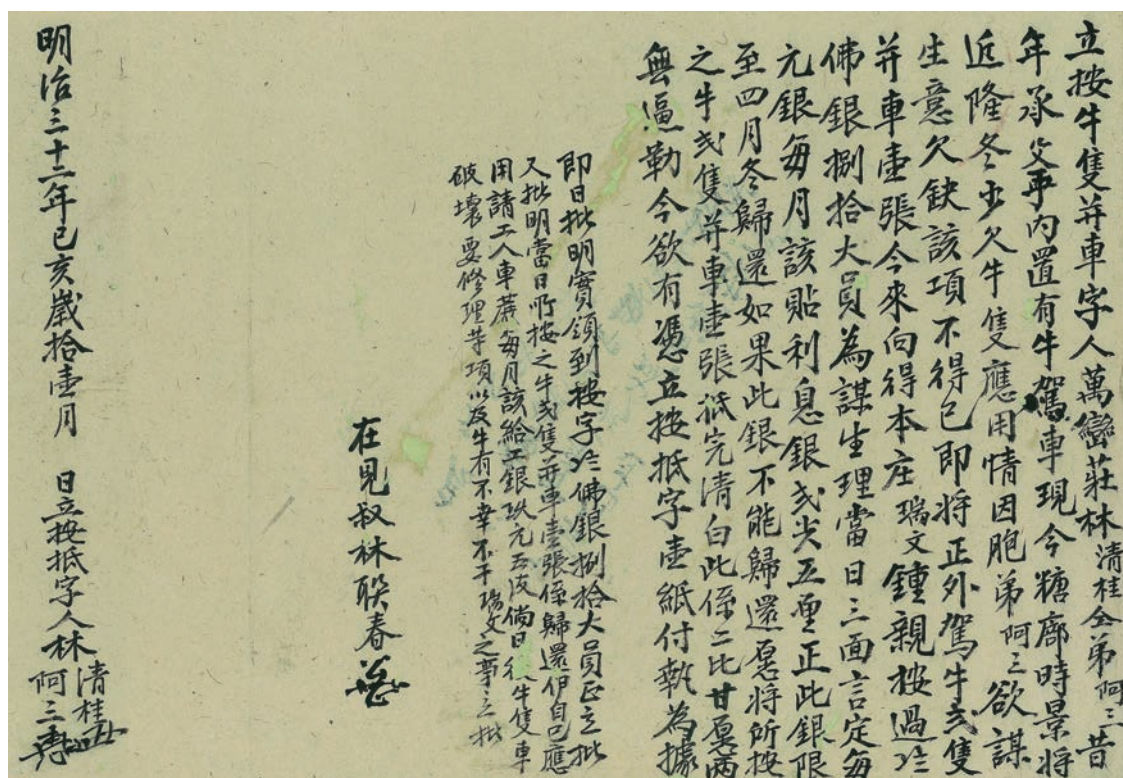 立按牛隻并車字人萬巒莊林清桂仝弟阿三昔
年承父手內置有牛駕車現今糖廍時景將
近隆冬少欠牛隻應用情因胞弟阿三欲謀
生意欠缺該項不得已即將正外駕牛弍隻
并車壹張今來向得本庄瑞文鍾親按過
佛銀捌拾大員為謀生理當日三面言定每
元銀每月該貼利息銀弍尖五厘正此銀限
至四月冬歸還如果此銀不能歸還愿將所按
之牛弍隻并車壹張抵完清白此係二比甘愿兩
無逼勒今欲有憑立按抵字壹紙付執為據
即日批明實領到按字佛銀捌拾大員正立批
又批明當日所按之牛弍隻并車壹張係歸還伊自己應
用請工人車蔗每月該給工銀玖元五占倘日後牛隻車
破壞要修理等項以及牛有不幸不干瑞文之事立批
在見叔林联春
明治三十二年己亥歲拾壹月 日立按抵字人林清桂
阿三